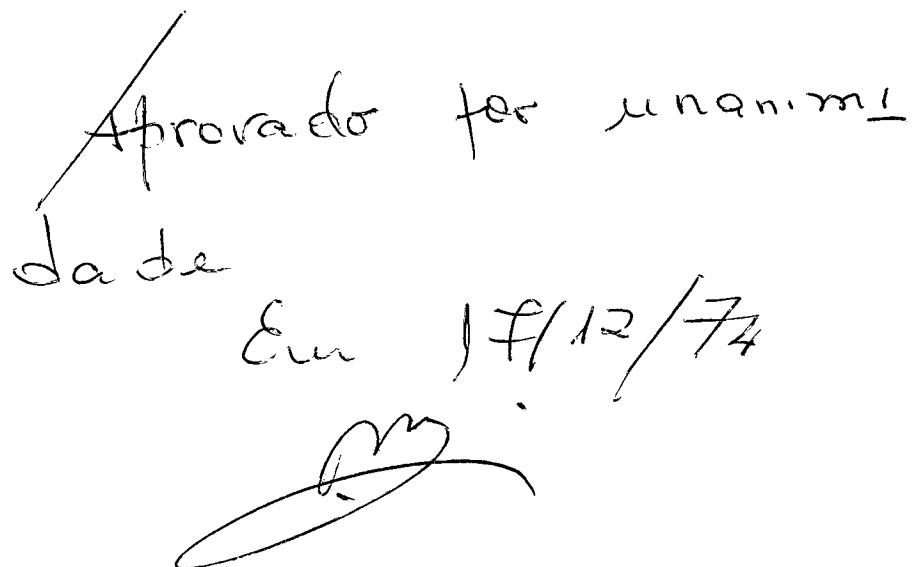 Aprovado por unanimi
dade
Em 17/12/74